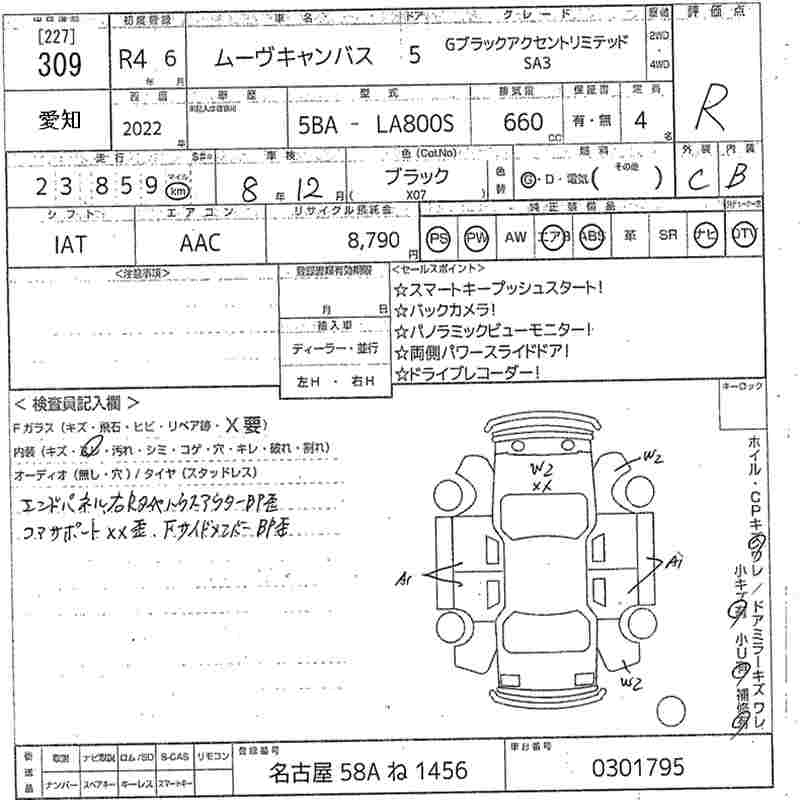 [227]
309
愛知
初度登録
R4 6
年 月
車名
ムーヴキャンバス
ドア
5
グレード
Gブラックアクセントリミテッド
SA3
2WD
・
4WD
評価点
R
2022
年
車歴
型式
5BA - LA800S
排気量
660
CC
保証書
有・無
定員
4
名
走行
23 859
マイル
km
車検
8 年 12 月
色(Col.No)
ブラック
( X07 )
色替
燃料
G・D・電気( その他 )
外装
C
内装
B
シフト
IAT
エアコン
AAC
リサイクル預託金
8,790
円
純正装備品
PS PW AW エアB ABS 革 SR ナビ TV
<注意事項>
登録書類有効期限
月 日
輸入車
ディーラー・並行
左H ・ 右H
<セールスポイント>
☆スマートキープッシュスタート!
☆バックカメラ!
☆パノラミックビューモニター!
☆両側パワースライドドア!
☆ドライブレコーダー!
キーロック
<検査員記入欄>
Fガラス(キズ・飛石・ヒビ・リペア跡・X要)
内装(キズ・ ・汚れ・シミ・コゲ・穴・キレ・破れ・割れ)
オーディオ(無し・穴)/タイヤ(スタッドレス)
エンドパネル右
コアサポートxx歪、
W2
xx
W2
A1
A1
W2
ホイル・CPキズ ワレ/ドアミラーキズ ワレ
小キズ 小U 補修
後送品
取説 ナビ取説 ロム/SD S-CAS リモコン
ナンバー スペアキー キーレス スマートキー
登録番号
名古屋 58A ね 1456
車台番号
0301795